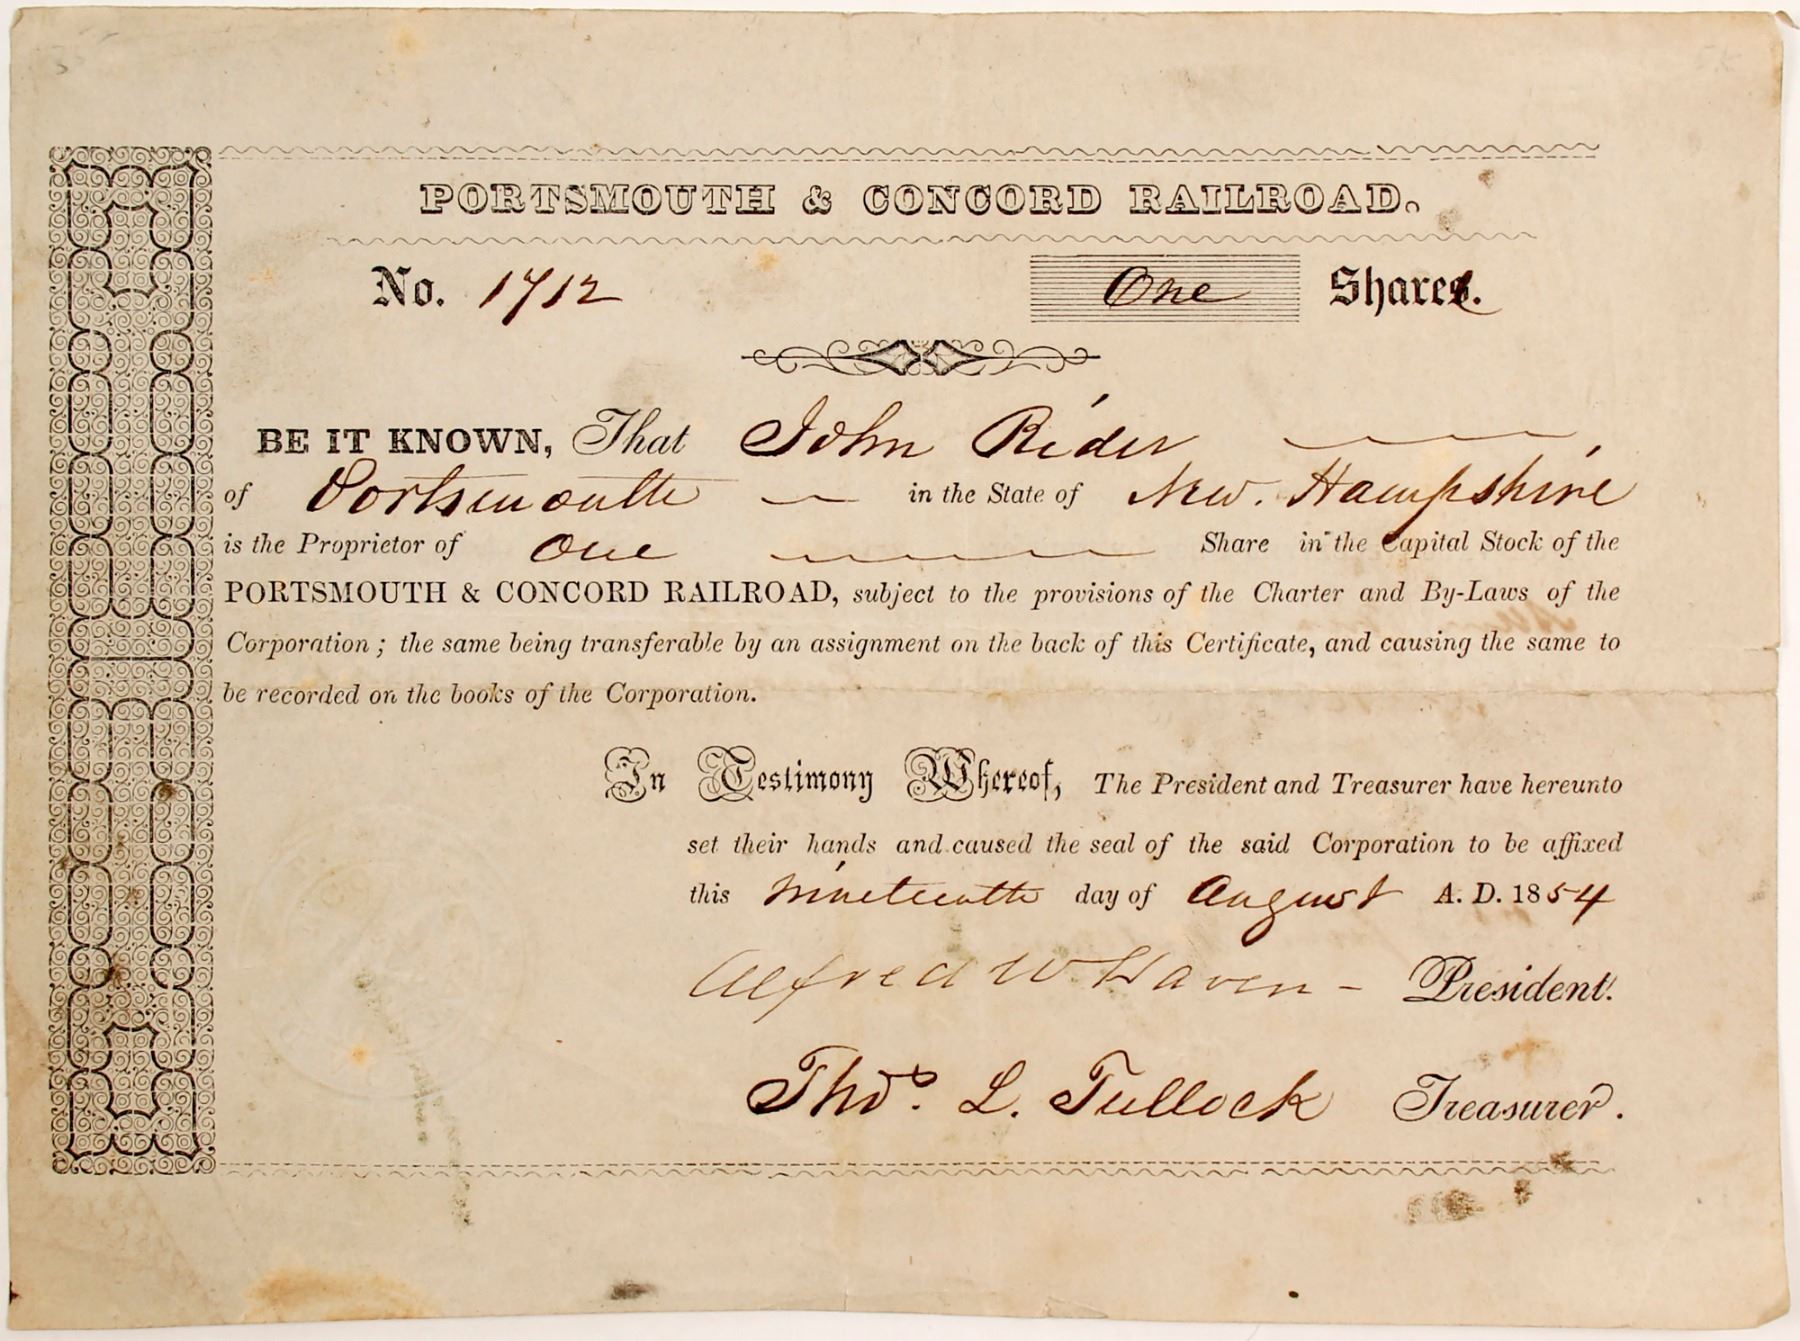 PORTSMOUTH & CONCORD RAILROAD.
No. 1712 One Shares.
BE IT KNOWN, That John Rider
of Portsmouth in the State of New. Hampshire
is the Proprietor of One Share in the Capital Stock of the
PORTSMOUTH & CONCORD RAILROAD, subject to the provisions of the Charter and By-Laws of the
Corporation; the same being transferable by an assignment on the back of this Certificate, and causing the same to
be recorded on the books of the Corporation.
In Testimony Whereof, The President and Treasurer have hereunto
set their hands and caused the seal of the said Corporation to be affixed
this Nineteenth day of August A. D. 1854
Alfred W Haven - President.
Thos. L. Tullock Treasurer.